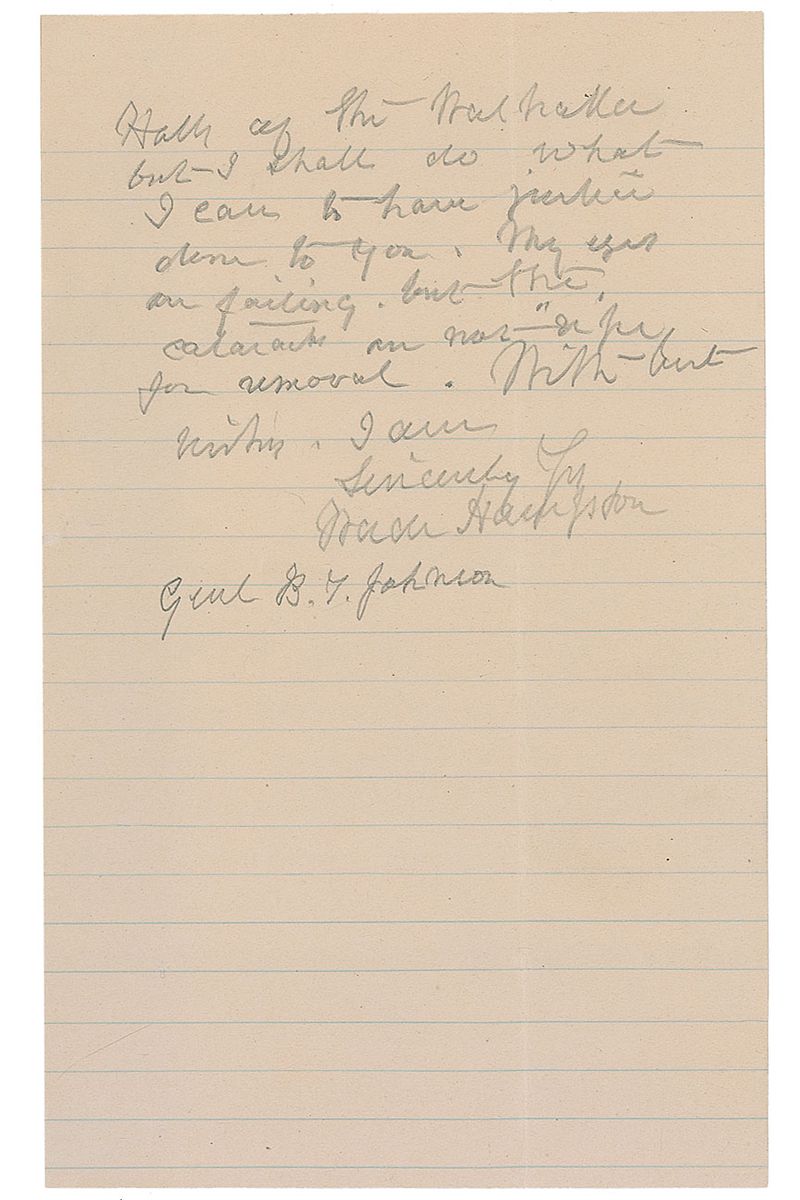 Halls of the Walhalla
but I shall do what
I can to have justice
done to you. My eyes
are failing. but the
cataracts are not "ripe
for removal. With best
wishes. I am
Sincerely Yrs
Wade Hampton
Genl B. T. Johnson